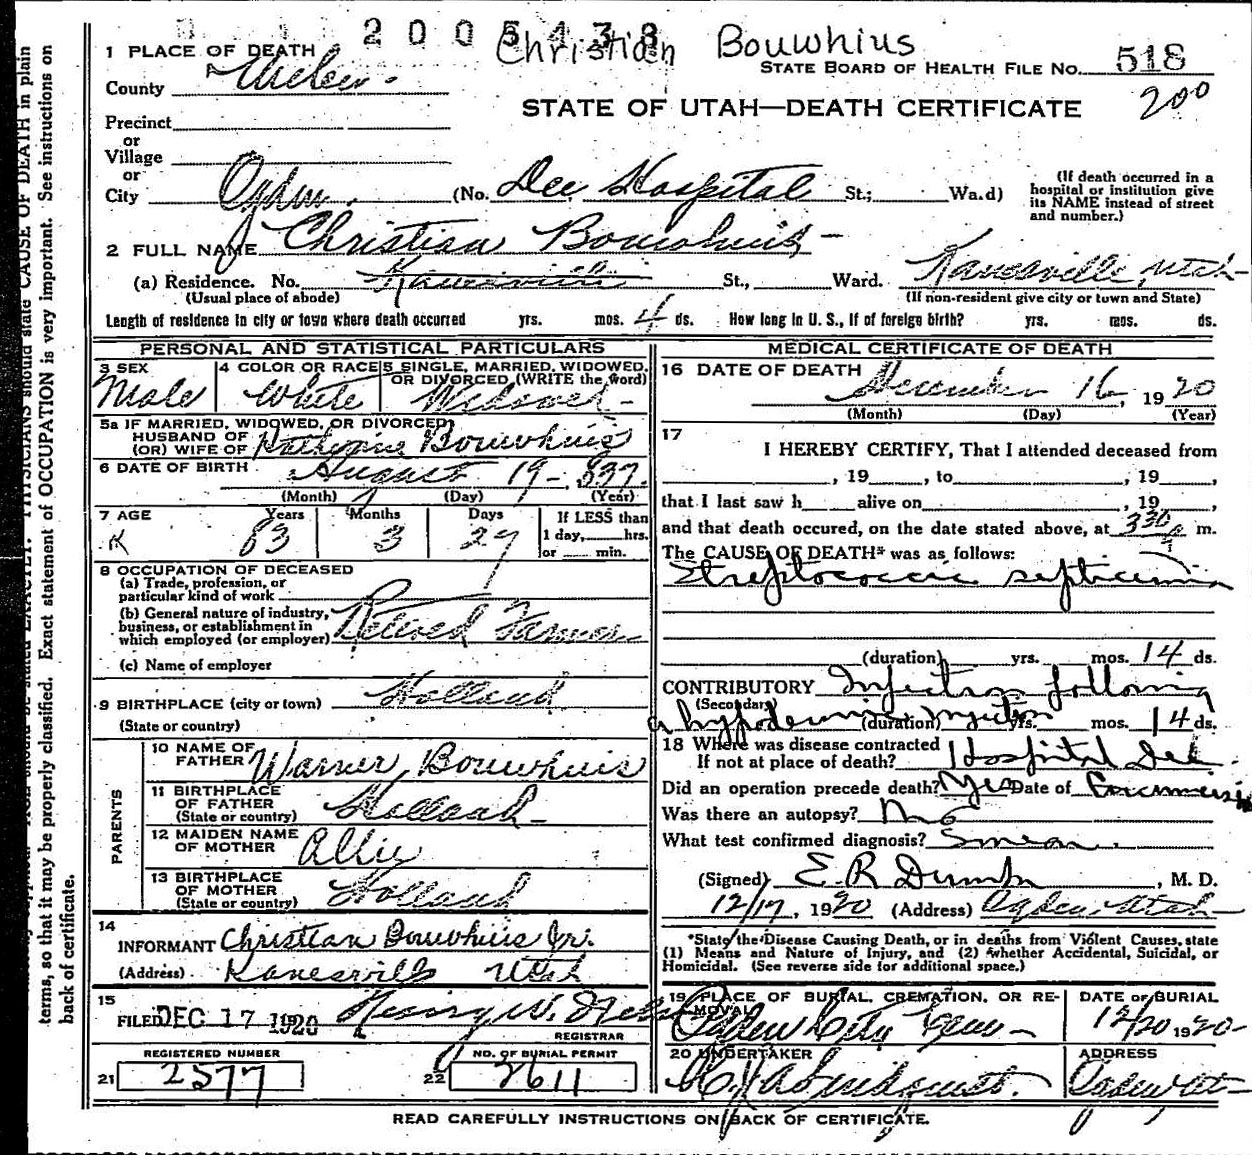 2005438
Christian Bouwhius
1 PLACE OF DEATH
STATE BOARD OF HEALTH FILE No. 518
County Weber
200
STATE OF UTAH—DEATH CERTIFICATE
Precinct
or
Village
or
City Ogden. (No. Dee Hospital St.; Wa.d)
(If death occurred in a
hospital or institution give
its NAME instead of street
and number.)
2 FULL NAME Christian Bouwhuis
(a) Residence. No. Kanesville St., Ward. Kanesville, Utah
(Usual place of abode) (If non-resident give city or town and State)
Length of residence in city or town where death occurred yrs. mos. 4 ds. How long in U. S., if of foreign birth? yrs. mos. ds.
PERSONAL AND STATISTICAL PARTICULARS
3 SEX 4 COLOR OR RACE 5 SINGLE, MARRIED, WIDOWED,
OR DIVORCED (WRITE the word)
Male White Widowed
5a IF MARRIED, WIDOWED, OR DIVORCED
HUSBAND OF
(OR) WIFE OF Katherine Bouwhuis
6 DATE OF BIRTH August 19 - 837.
(Month) (Day) (Year)
7 AGE Years Months Days If LESS than
83 3 27 1 day, hrs.
or min.
8 OCCUPATION OF DECEASED
(a) Trade, profession, or
particular kind of work
(b) General nature of industry,
business, or establishment in
which employed (or employer) Retired Farmer
(c) Name of employer
9 BIRTHPLACE (city or town) Holland
(State or country)
PARENTS
10 NAME OF
FATHER Warner Bouwhuis
11 BIRTHPLACE
OF FATHER
(State or country) Holland
12 MAIDEN NAME
OF MOTHER Allie
13 BIRTHPLACE
OF MOTHER
(State or country) Holland
14
INFORMANT Christian Bouwhuis Jr.
(Address) Kanesville Utah
15
FILED DEC 17 1920 Henry W.
REGISTRAR
REGISTERED NUMBER NO. OF BURIAL PERMIT
21 2577 22 2611
MEDICAL CERTIFICATE OF DEATH
16 DATE OF DEATH
December 16, 1920
(Month) (Day) (Year)
17
I HEREBY CERTIFY, That I attended deceased from
, 19 , to , 19 ,
that I last saw h alive on , 19 ,
and that death occured, on the date stated above, at 330 m.
The CAUSE OF DEATH* was as follows:
Streptococcic septicemia
(duration) yrs. mos. 14 ds.
CONTRIBUTORY Infection following
(Secondary)
a hypodermic injection (duration) yrs. mos. 14 ds.
18 Where was disease contracted
If not at place of death? Hospital Dee
Did an operation precede death? Yes Date of
Was there an autopsy? No
What test confirmed diagnosis? Smear.
(Signed) E. R. Dumke, M. D.
12/17, 1920 (Address) Ogden, Utah
*State the Disease Causing Death, or in deaths from Violent Causes, state
(1) Means and Nature of Injury, and (2) whether Accidental, Suicidal, or
Homicidal. (See reverse side for additional space.)
19 PLACE OF BURIAL, CREMATION, OR RE-
MOVAL DATE OF BURIAL
Ogden City Cem 12/20 1920
20 UNDERTAKER ADDRESS
Ogden Ut
READ CAREFULLY INSTRUCTIONS ON BACK OF CERTIFICATE.
PHYSICIANS should state CAUSE OF DEATH in plain
terms, so that it may be properly classified. Exact statement of OCCUPATION is very important. See instructions on
back of certificate.